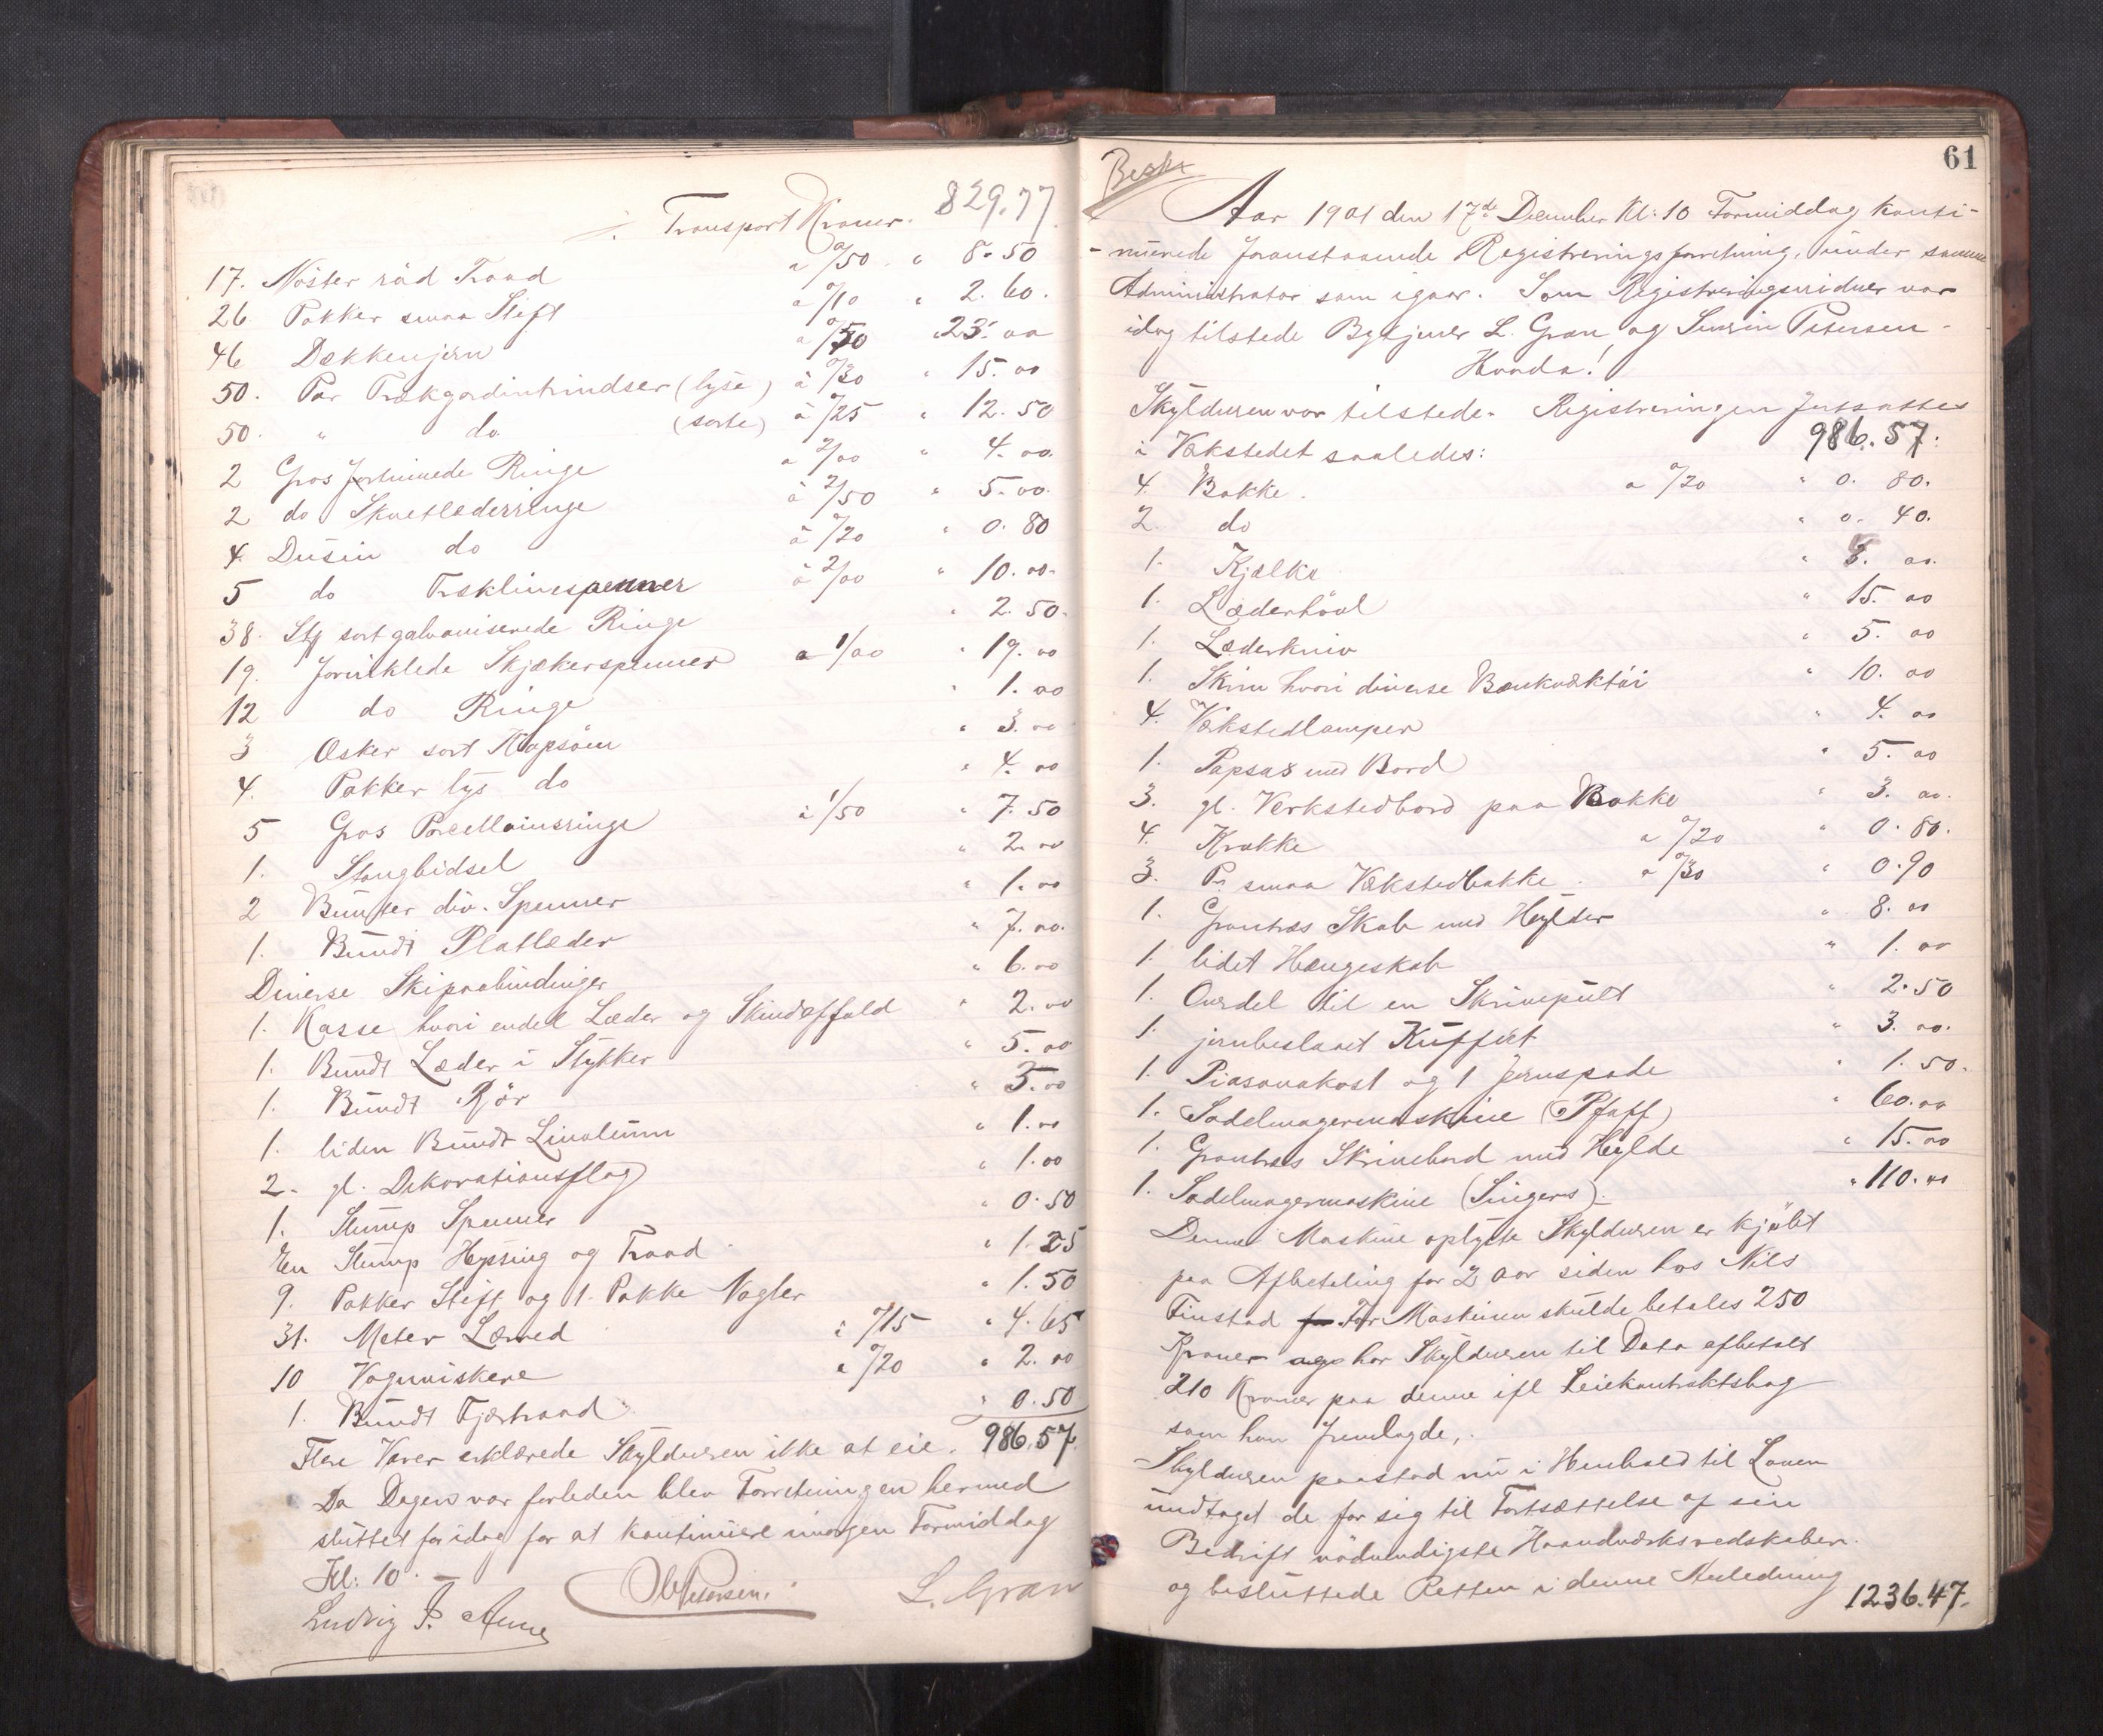 Transport Kroner. 829.77
17. Nöster råd Traad a 0/50 " 8.50
26 Pakker smaa Stift a 0/10 " 2.60.
46 Dækkenjern a 0/50 " 23.00
50. Par Trækgardintrindser (lyse) à 0/30 " 15.00
50. " do (sorte) à 0/25 " 12.50
2 Gros fortinnede Ringe a 2/00 " 4.00.
2 do Skvetlæderringe à 2/50 " 5.00.
4. Dusin do à 0/20 " 0.80
5 do Træklinespenner à 2/00 " 10.00.
38. Stk sort galvaniserede Ringe " 2.50.
19. forniklede Skjækerspenner a 1/00 " 19.00
12 do Ringe " 1.00
3 Æsker sort Kapsöm " 3.00
4. Pakker lys do " 4.00
5 Gros Porcellainsringe à 1/50 " 7.50
1. Stangbidsel " 2.00
2 Bunter div. Spenner " 1.00
1. Bundt Platlæder " 7.00.
Diverse Skipaabindinger " 6.00
1. Kasse hvori endel Læder og Skindaffald " 2.00
1. Bundt Læder i Stykker " 5.00
1. Bundt Rör " 3.00
1. liden Bundt Linoleum " 1.00
2. gl. Dekorationsflag " 1.00
1. Stump Spenner " 0.50
En Stump Hyssing og Traad " 1.25
9. Pakker Stift og 1. Pakke Nagler " 1.50
31. Meter Lærred à 0/15 " 4.65
10 Vognviskere a 0/20 " 2.00
1. Bundt Fjærtraad " 0.50
Flere Varer erklærede Skylderen ikke at eie. 986.57
Da Dagen var forleden blev Forretningen hermed
sluttet for idag for at kontinuere imorgen Formiddag
Kl: 10. –
Ludvig P. L. Gran
61
Aar 1901 den 17de December Kl: 10 Formiddag konti-
- nuerede foranstaaende Registreringsforretning, under samme
Administrator som igaar. Som Registreringsvidner var
idag tilstede Bytjener L. Gran og Severin Petersen -
Hvorda!
Skylderen var tilstede. Registreringen fortsattes
i Værkstedet saaledes: 986.57.
4. Bakke. a 0/20 " 0.80.
2. do " 0.40.
1. Kjælke " 3.00.
1. Læderhövl " 15.00
1. Læderkniv " 5.00
1. Skrin hvori diverse Bænkværktöi " 10.00
4. Værkstedlamper " 4.00
1. Papsax med Bord " 5.00
3. gl. Verkstedbord paa Bukke " 3.00.
4. Krakke a 0/20 " 0.80.
3. Pr smaa Værkstedbukke. a 0/30 " 0.90
1. Grantræs Skab med Hylder " 8.00
1. lidet Hængeskab " 1.00
1. Overdel til en Skrivepult " 2.50
1. jernbeslaaet Kuffert " 3.00.
1. Piasavakost og 1 Jernspade " 1.50.
1. Sadelmagermaskine (Pfaff) " 60.00
1. Grantræs Skrivebord med Hylde " 15.00
1. Sadelmagermaskine (Singers). " 110.00
Denne Maskine oplyste Skylderen er kjöbt
paa Afbetaling for 2 Aar siden hos Nils
Finstad For Maskinen skulde betales 250
Kroner og har Skylderen til Dato afbetalt
210 Kroner paa denne ifl Leiekontraktsbog
som han fremlagde,.
Skylderen paastod nu i Henhold til Loven
undtaget de for sig til Fortsættelse af sin
Bedrift nödvendigste Haandværksredskaber.
og besluttede Retten i denne Anledning 1236.47.